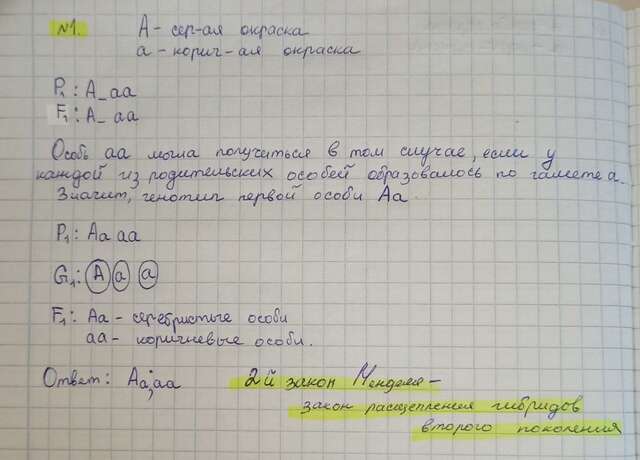 №1. А - сер-ая окраска
а - корич-ая окраска
P₁: А_ аа
F₁: А_ аа
Особь аа могла получиться в том случае, если у
каждой из родительских особей образовалось по гамете а.
Значит, генотип первой особи Аа.
P₁: Аа аа
G₁: А а а
F₁: Аа - серебристые особи
аа - коричневые особи.
Ответ: Аа; аа 2й закон Менделя -
закон расщепления гибридов
второго поколения